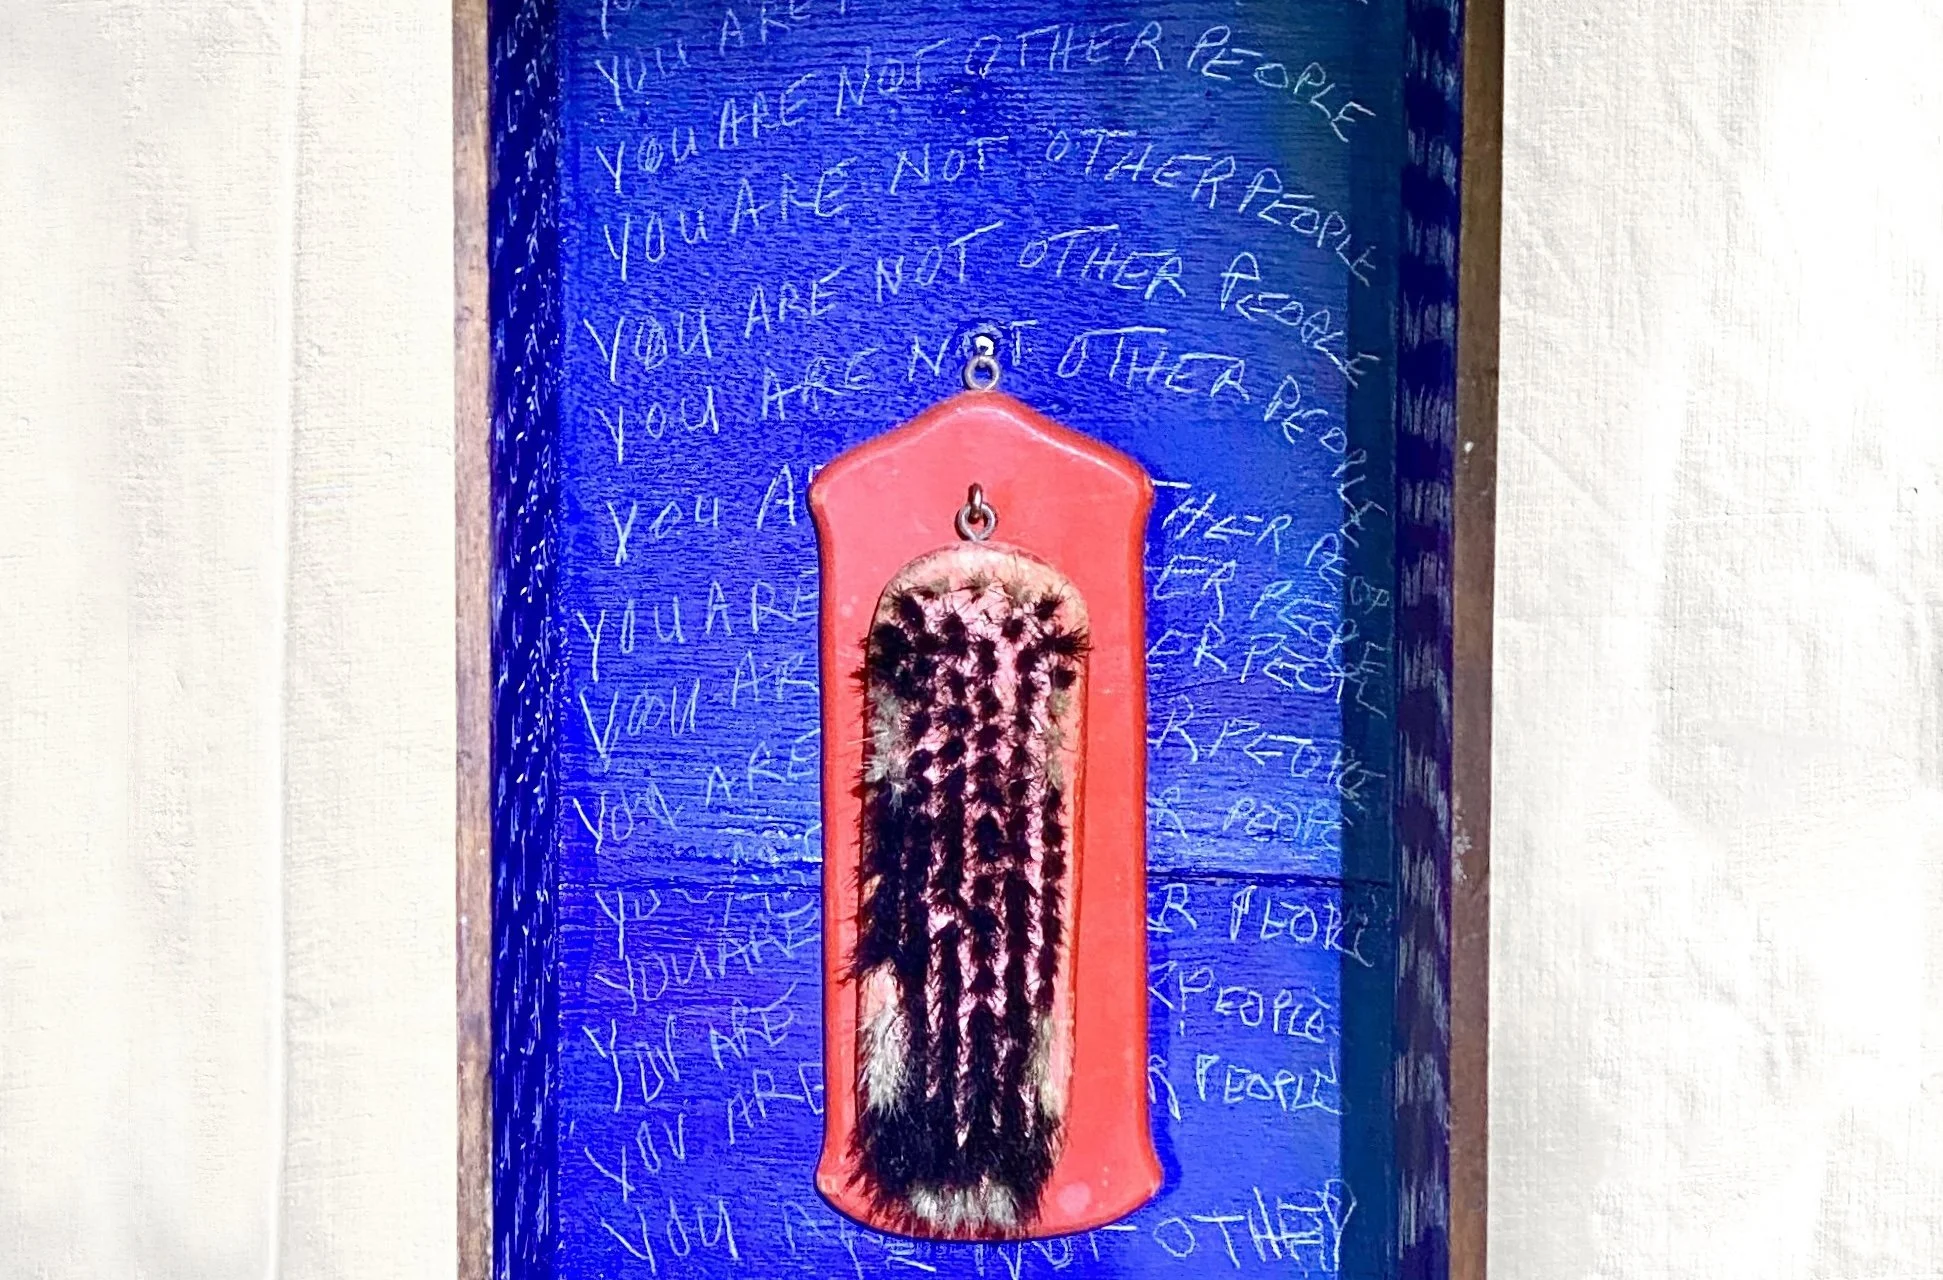 YOU ARE
YOU ARE NOT OTHER PEOPLE
YOU ARE NOT OTHER PEOPLE
YOU ARE NOT OTHER PEOPLE
YOU ARE NOT OTHER PEOPLE
YOU A THER PEOPL
YOU ARE ER PEOPLE
YOU AR ER PEOPL
YOU ARE R PEOPLE
YOU R PEOPLE
YOU ARE R PEOPLE
YOU ARE R PEOPLE
YOU ARE R PEOPLE
YOU ARE NOT OTHER